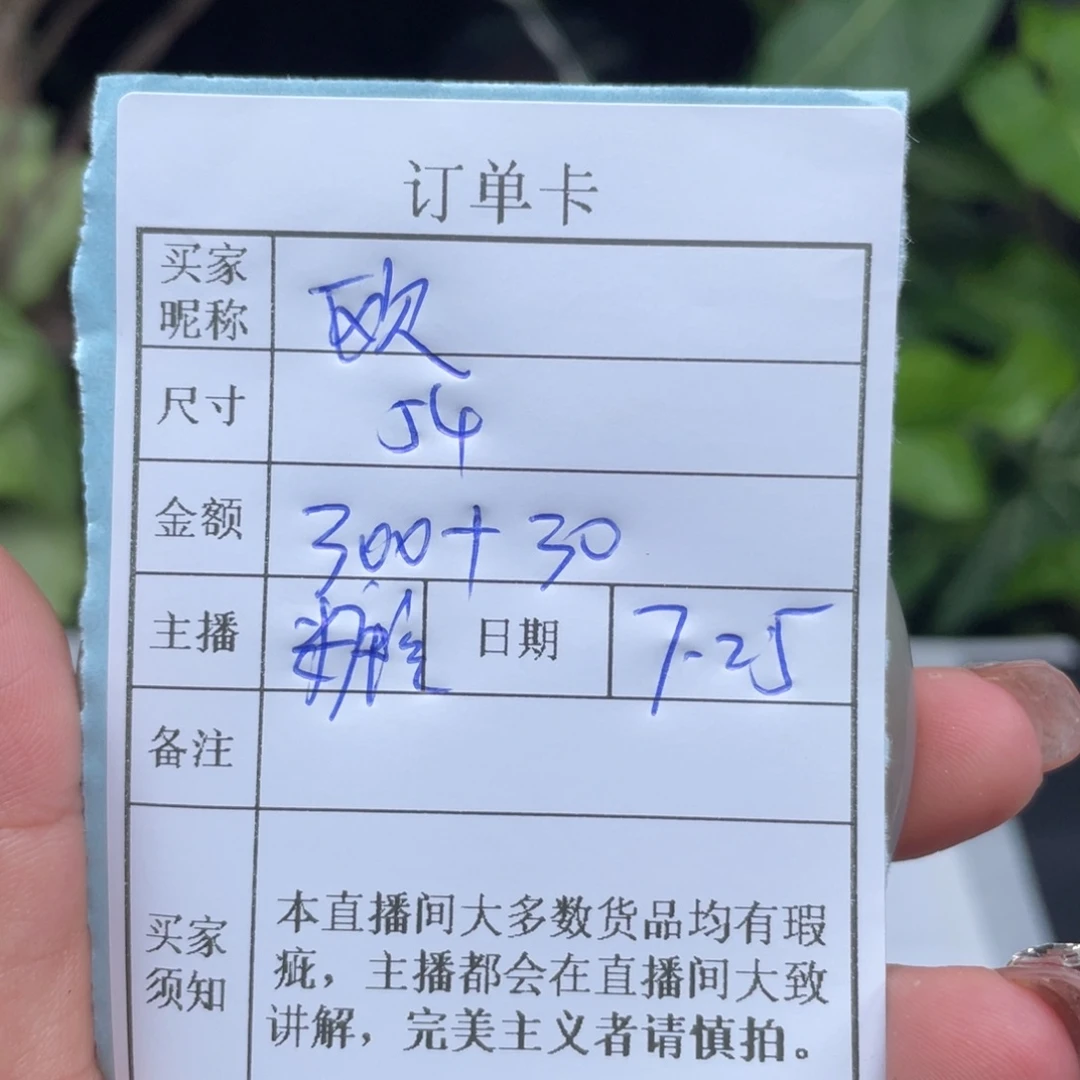 订单卡
买家昵称 欧
尺寸 54
金额 300+30
主播 日期 7.25
备注
买家须知
本直播间大多数货品均有瑕
疵，主播都会在直播间大致
讲解，完美主义者请慎拍。